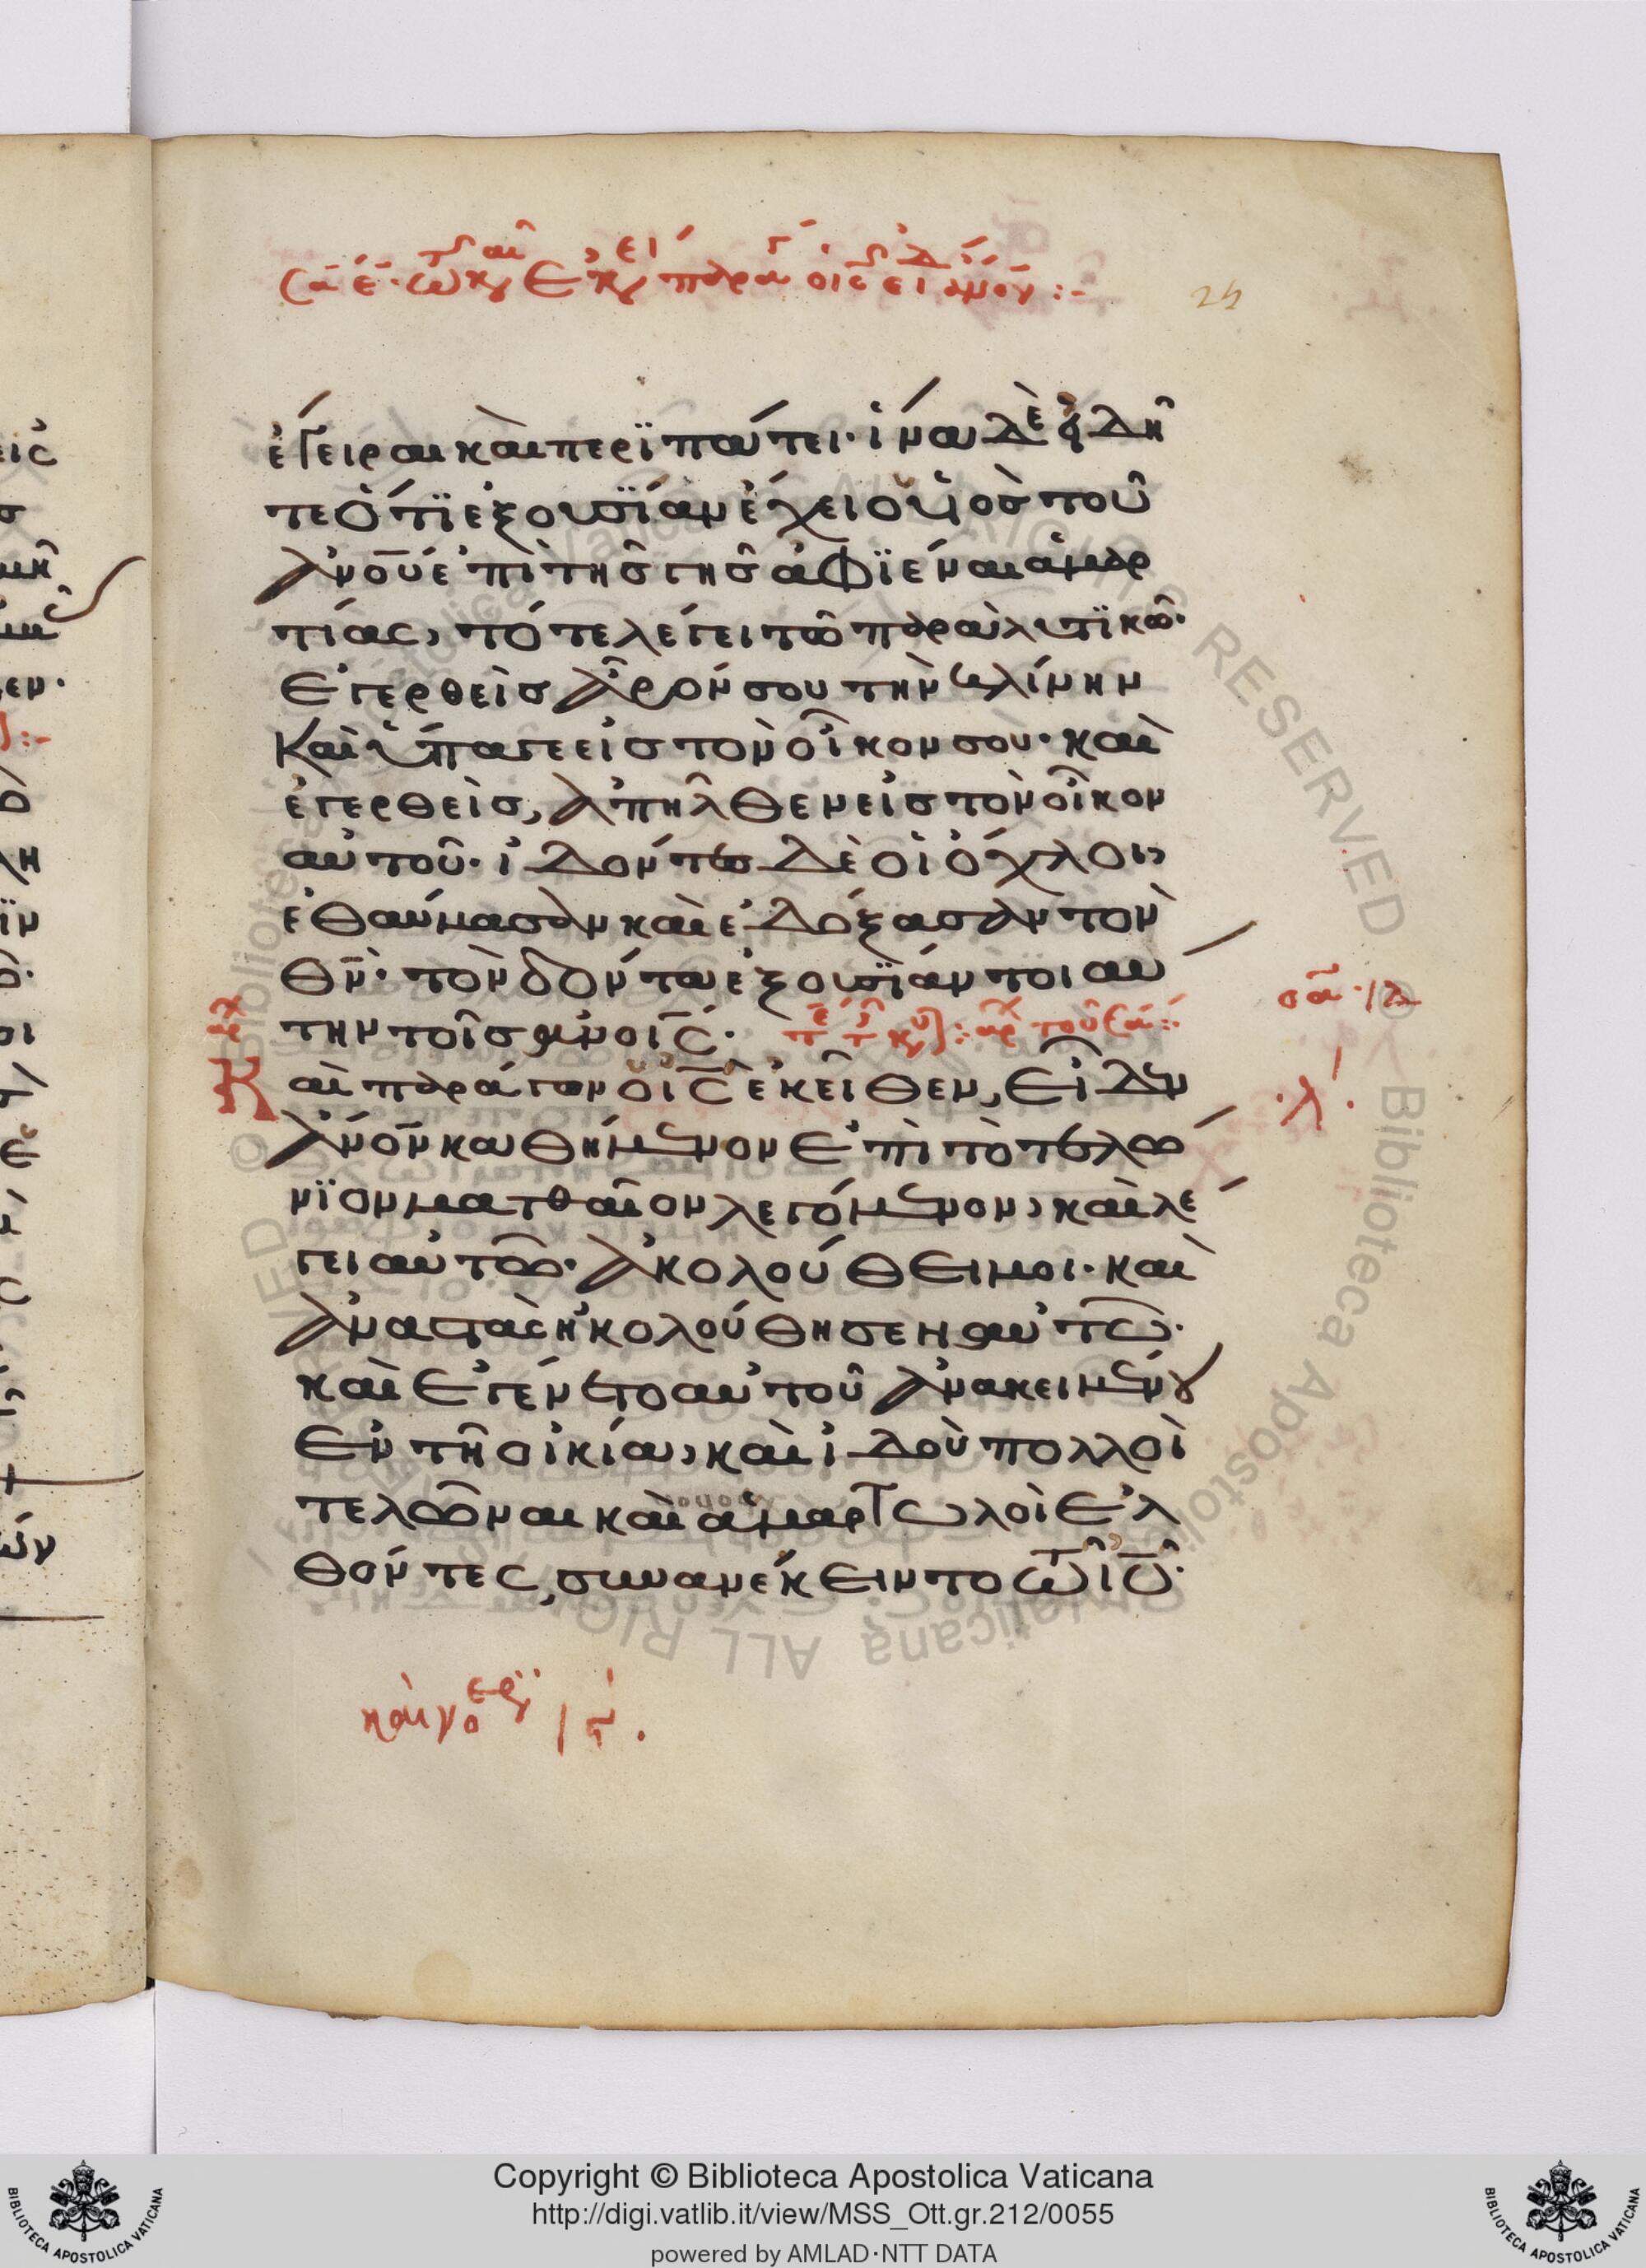 25
ἔγειραι καὶ περϊπάτει· ἵνα δὲ εἰδῆ
τε ὅτϊ ἐξουσϊάν ἔχει ὁ υἱὸσ τοῦ
ἀνο̅υ ἐπὶ τῆσ γῆσ ἀφϊέναι ἁμαρ
τίας, τότε λέγει τῶ παραλυτϊκῶ·
Ἐγερθεὶσ ἆρόν σου τὴν κλίνην
Καὶ ὕπαγε εἰσ τὸν οἶκον σου· καὶ
ἐγερθεὶσ, ἀπῆλθεν εἰσ τὸν οἶκον
αὐτοῦ· ἰδόντεσ δὲ οἱ ὄχλοι,
ἐθαύμασαν καὶ ἐδόξασαν τὸν
θν̅· τὸν δόντα ἐξουσϊάν τοιαύ
την τοῖσ ἀνοι̅ς·
αὶ παράγων ὁ ις̅ ἐκεῖθεν, εἶδεν
ἀνο̅ν καθήμενον ἐπὶ τὸ τελώ
νϊον ματθαῖον λεγόμενον, καὶ λέ
γει αὐτῶ· ἀκολούθει μοι· καὶ
ἀναστὰς ἠκολούθησεν αὐτῶ·
καὶ ἐγένετο αὐτοῦ ἀνακειμένου
ἐν τῆ οἰκία, καὶ ἰδοὺ πολλοὶ
τελῶναι καὶ ἁμαρτωλοὶ ἐλ
θόντες, συνανέκειντο τῶ ιυ̅·
·λ·
Copyright © Biblioteca Apostolica Vaticana
http://digi.vatlib.it/view/MSS_Ott.gr.212/0055
powered by AMLAD·NTT DATA
BIBLIOTECA APOSTOLICA VATICANA
BIBLIOTECA APOSTOLICA VATICANA